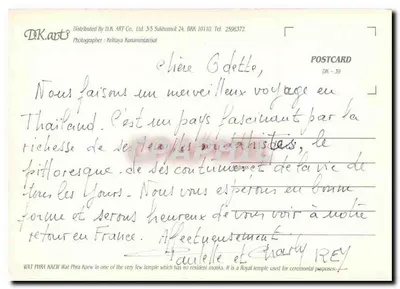 D.K. art
Distributed by D.K. ART Co., Ltd. 3/5 Sukhumvit 24, BKK 10110 Tel. 2586372
Photographer :
POSTCARD
DK - 38
Chère Odette,
Nous faisons un merveilleux voyage en
Thaïland. C'est un pays fascinant par la
richesse de ses le
pittoresque de ses coutumes et de la vie de
tous les jours. Nous vous espérons en bonne
forme et serons heureux de vous voir à notre
retour en France. Affectueusement
Paulette et Charly REY
WAT PHRA KAEW Wat Phra Kaew is one of the very few temple which has no resident monks. It is a Royal temple used for ceremonial purposes.